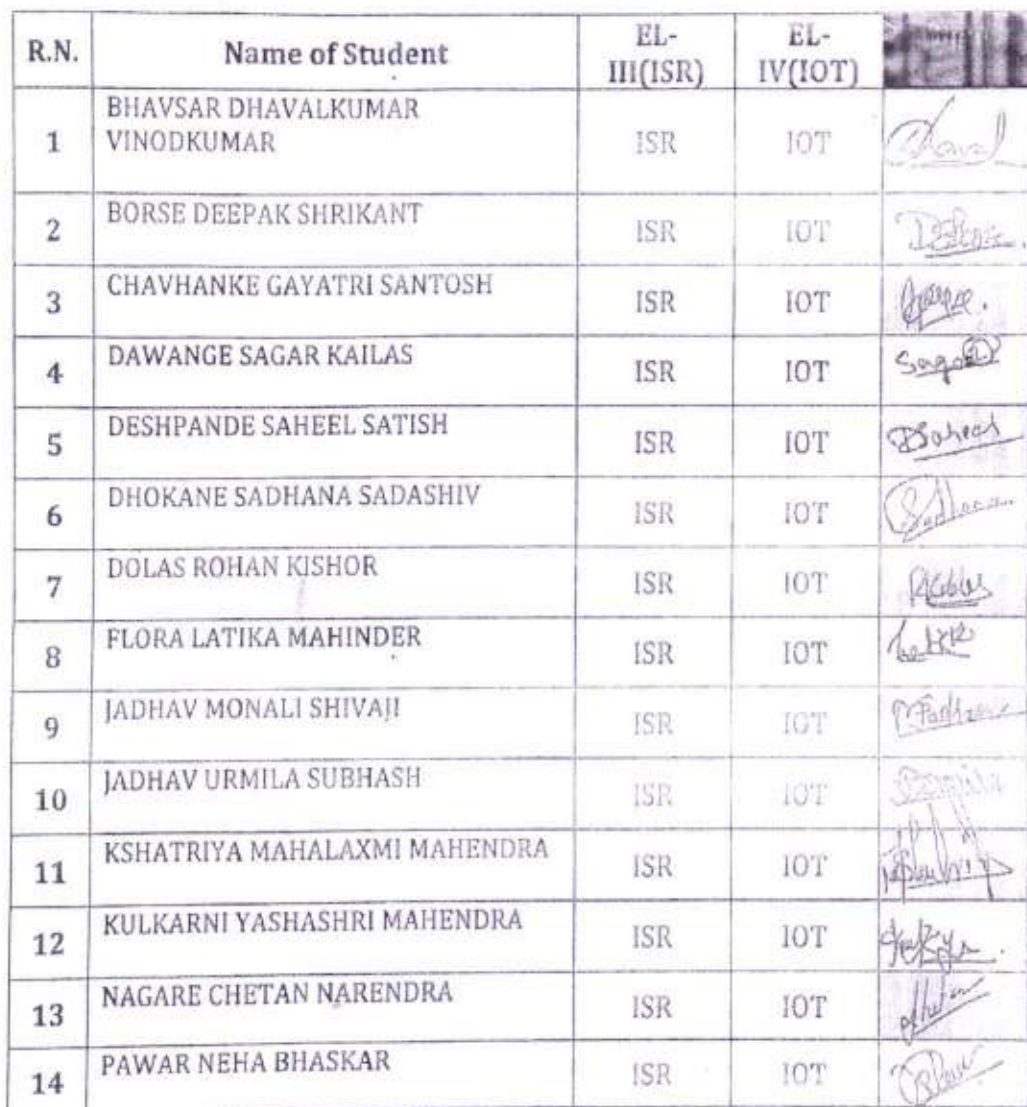 R.N. Name of Student EL-III(ISR) EL-IV(IOT)
1 BHAVSAR DHAVALKUMAR VINODKUMAR ISR IOT Dhaval
2 BORSE DEEPAK SHRIKANT ISR IOT
3 CHAVHANKE GAYATRI SANTOSH ISR IOT
4 DAWANGE SAGAR KAILAS ISR IOT
5 DESHPANDE SAHEEL SATISH ISR IOT DSaheel
6 DHOKANE SADHANA SADASHIV ISR IOT
7 DOLAS ROHAN KISHOR ISR IOT
8 FLORA LATIKA MAHINDER ISR IOT
9 JADHAV MONALI SHIVAJI ISR IOT
10 JADHAV URMILA SUBHASH ISR IOT
11 KSHATRIYA MAHALAXMI MAHENDRA ISR IOT
12 KULKARNI YASHASHRI MAHENDRA ISR IOT
13 NAGARE CHETAN NARENDRA ISR IOT
14 PAWAR NEHA BHASKAR ISR IOT